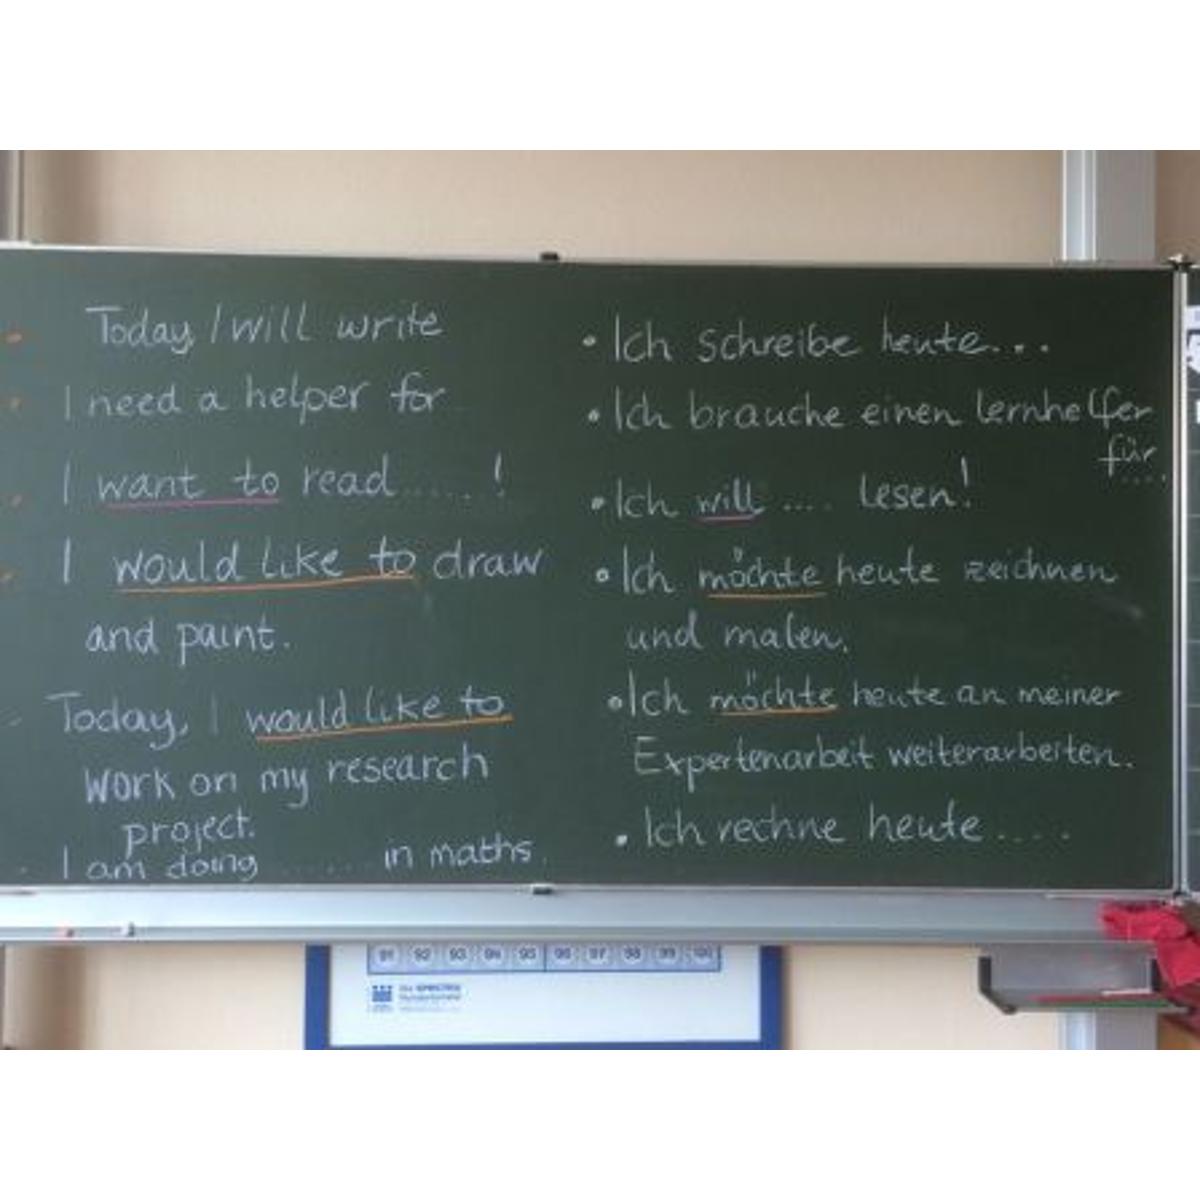 Today, I will write
I need a helper for
I want to read......!
I would like to draw
and paint.
Today, I would like to
work on my research
project.
I am doing ....... in maths.
• Ich schreibe heute...
• Ich brauche einen Lernhelfer
für....
• Ich will .... lesen!
• Ich möchte heute zeichnen
und malen.
• Ich möchte heute an meiner
Expertenarbeit weiterarbeiten.
• Ich rechne heute ....
91 92 93 94 95 96 97 98 99 100